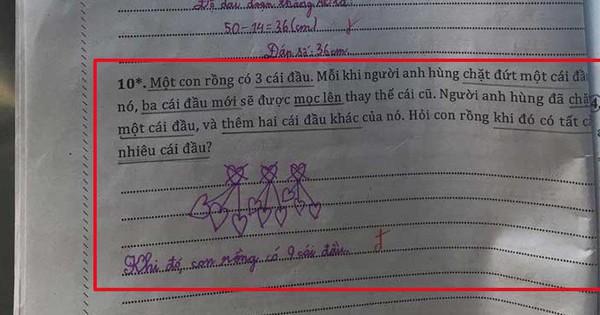 Độ dài đoạn thẳng
50-14=36(cm)
Đáp số: 36cm
10*. Một con rồng có 3 cái đầu. Mỗi khi người anh hùng chặt đứt một cái đầ
nó, ba cái đầu mới sẽ được mọc lên thay thế cái cũ. Người anh hùng đã chặ
một cái đầu, và thêm hai cái đầu khác của nó. Hỏi con rồng khi đó có tất c
nhiêu cái đầu?
Khi đó, con rồng có 9 cái đầu